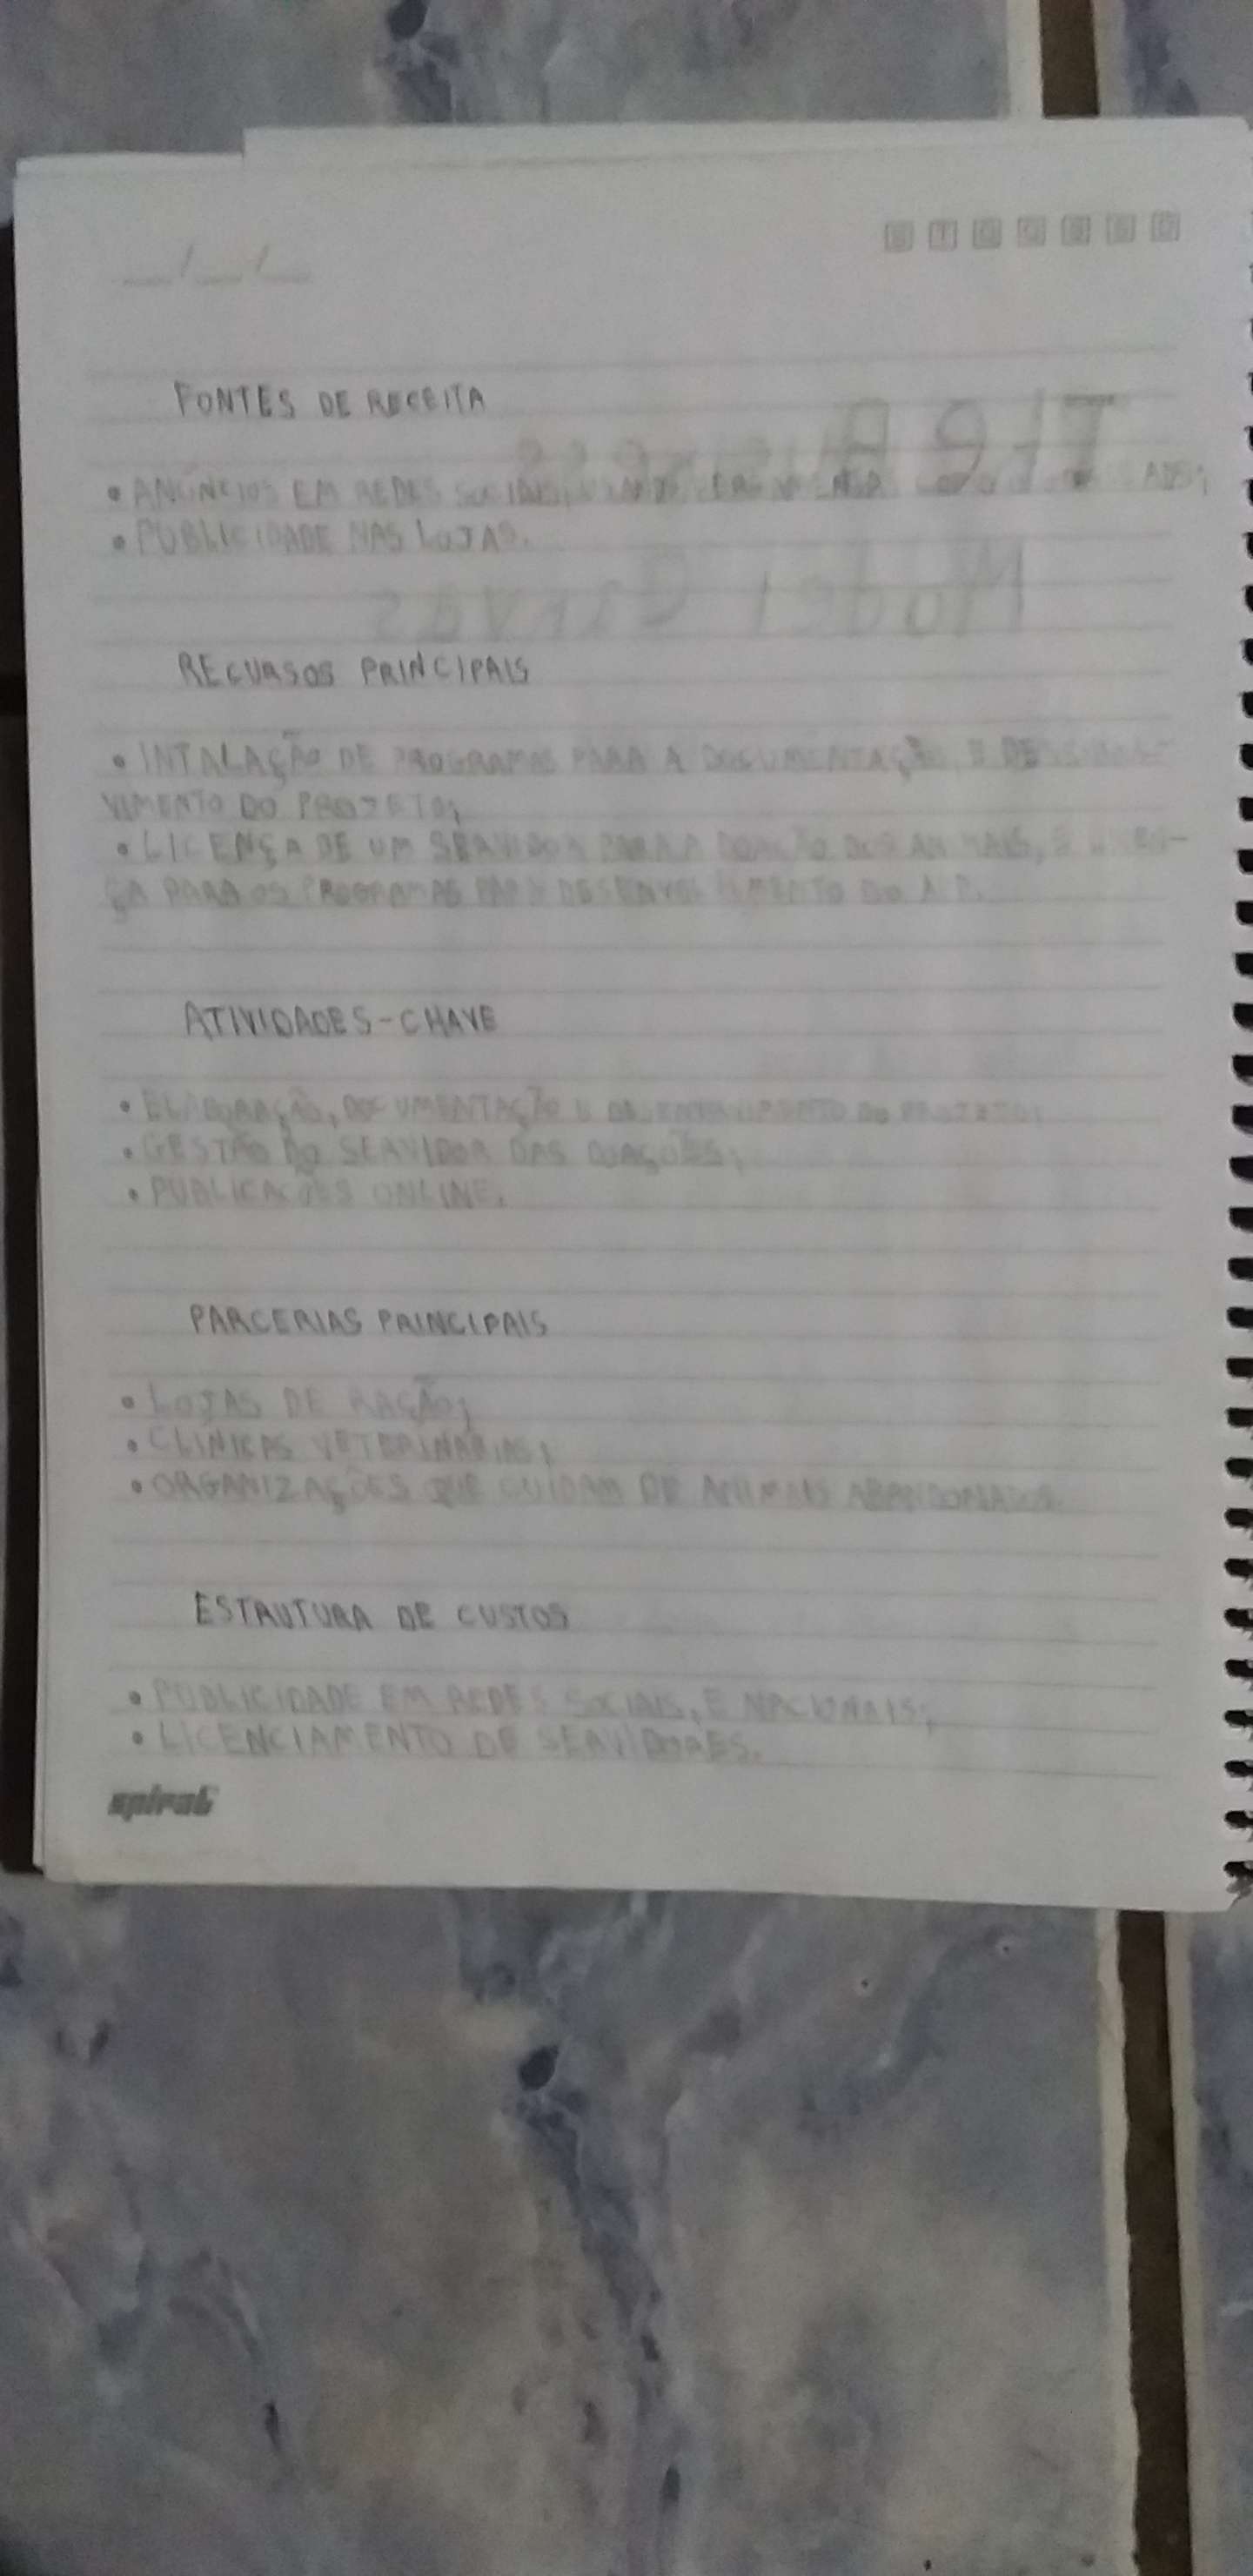 FONTES DE RECEITA
• ANÚNCIOS EM REDES SOCIAIS, ADS;
• PUBLICIDADE NAS LOJAS.
RECURSOS PRINCIPAIS
• INTALAÇÃO DE PROGRAMAS PARA A DOCUMENTAÇÃO, E
VIMENTO DO PROJETO;
• LICENÇA DE UM SERVIDOR PARA A DOAÇÃO DOS ANIMAIS, E
ÇA PARA OS PROGRAMAS PARA DESENVOLVIMENTO DO
ATIVIDADES-CHAVE
• ELABORAÇÃO, DOCUMENTAÇÃO E DESENVOLVIMENTO DO PROJETO;
• GESTÃO DO SERVIDOR DAS DOAÇÕES;
• PUBLICAÇÕES ONLINE.
PARCERIAS PRINCIPAIS
• LOJAS DE RAÇÃO;
• CLINICAS VETERINARIAS;
• ORGANIZAÇÕES QUE CUIDAM DE ANIMAIS ABANDONADOS.
ESTRUTURA DE CUSTOS
• PUBLICIDADE EM REDES SOCIAIS, E NACIONAIS;
• LICENCIAMENTO DE SERVIDORES.
spiral